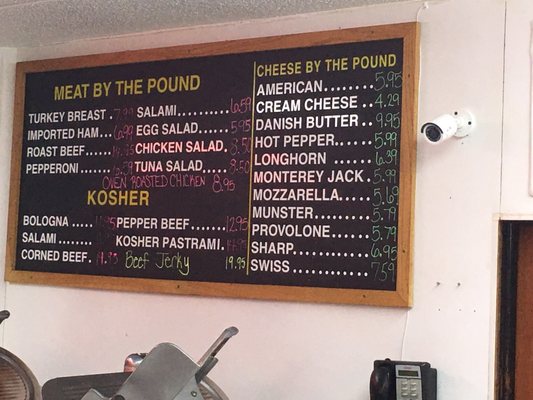 MEAT BY THE POUND
TURKEY BREAST . 7.99
IMPORTED HAM... 6.99
ROAST BEEF......
PEPPERONI ......
SALAMI.......... 6.59
EGG SALAD....... 5.95
CHICKEN SALAD. 8.50
TUNA SALAD..... 8.50
OVEN ROASTED CHICKEN 8.95
KOSHER
BOLOGNA .....
SALAMI ........
CORNED BEEF. 14.95
PEPPER BEEF....... 12.95
KOSHER PASTRAMI.
Beef Jerky 19.95
CHEESE BY THE POUND
AMERICAN........ 5.95
CREAM CHEESE . 4.29
DANISH BUTTER.. 9.95
HOT PEPPER..... 5.99
LONGHORN ..... 6.39
MONTEREY JACK. 5.99
MOZZARELLA..... 5.69
MUNSTER........ 5.79
PROVOLONE..... 5.79
SHARP........... 6.95
SWISS........... 7.59